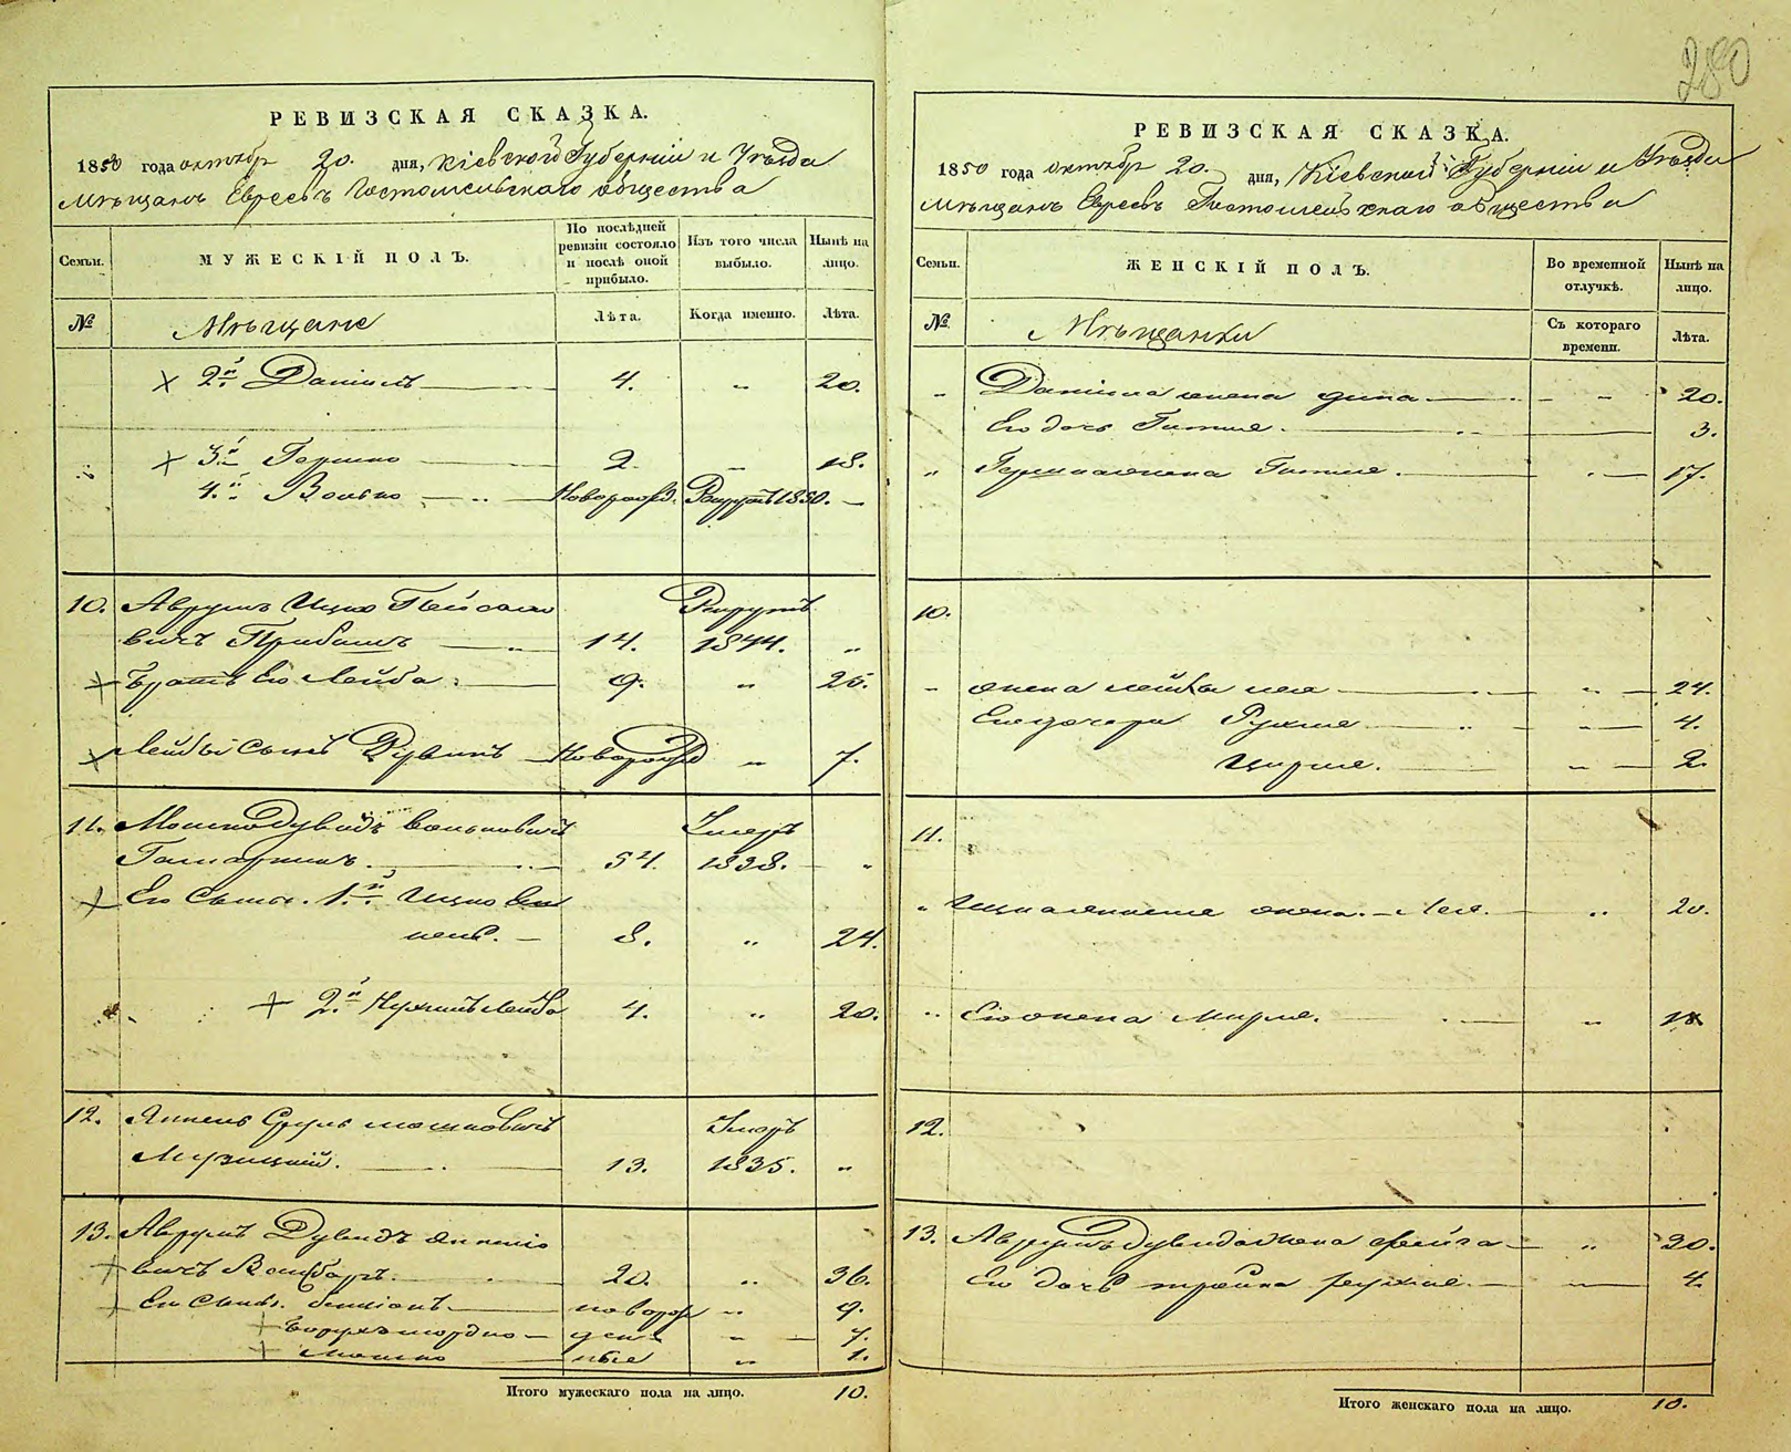 280
РЕВИЗСКАЯ СКАЗКА.
1850 года октябр 20. дня, Кіевской Губерніи и Уѣзда
Мѣщанъ Евреевъ Гостомельскаго общества
Семьи. МУЖЕСКІЙ ПОЛЪ. По послѣдней ревизіи состояло и послѣ оной прибыло. Изъ того числа выбыло. Нынѣ на лицо.
№ Мѣщане Лѣта. Когда именно. Лѣта.
2й Даніилъ 4. „ 20.
3й Гершко 2. 18.
4й Волько Новорожд. Рекрутъ 1850. —
10. Аврумъ Ицко Пейсахо Рекрутъ
вичъ 14. 1844. „
Братъ Его Лейба 9. „ 25.
Лейбы Сынъ Новорожд „ 7.
11. Мошко Дувидъ Вольковичъ Умеръ
54. 1838. „
Его Сыны. 1й Ицко
8. „ 24.
2й Нухимъ Лейба 4. „ 20.
12. Янкель Сруль Мошковичъ Умеръ
Музицкий. 13. 1835. „
13. Аврумъ Дувидъ Янкеліо
вичъ 20. „ 36.
Его Сыны. Бенціонъ новорож „ 9.
Борухъ Мордко ден „ 7.
Мошко ные „ 1.
Итого мужескаго пола на лицо. 10.
РЕВИЗСКАЯ СКАЗКА.
1850 года октябр 20. дня, Кіевской Губерніи и Уѣзда
Мѣщанъ Евреевъ Гостомельскаго общества
Семьи. ЖЕНСКІЙ ПОЛЪ. Во временной отлучкѣ. Нынѣ на лицо.
№ Мѣщанки Съ котораго времени. Лѣта.
Даніила жена 20.
Его дочь Гитля. 3.
Гершка жена Гитля. 17.
10.
жена Лейбы Лея 24.
Его дочери Рухля 4.
Цирля. 2.
11.
жена. Лея. „ 20.
Его жена Мирля. „ 18
12.
13. Аврумъ Дувида жена Фейга „ 30.
Его дочь Рухля. 4.
Итого женскаго пола на лицо. 10.